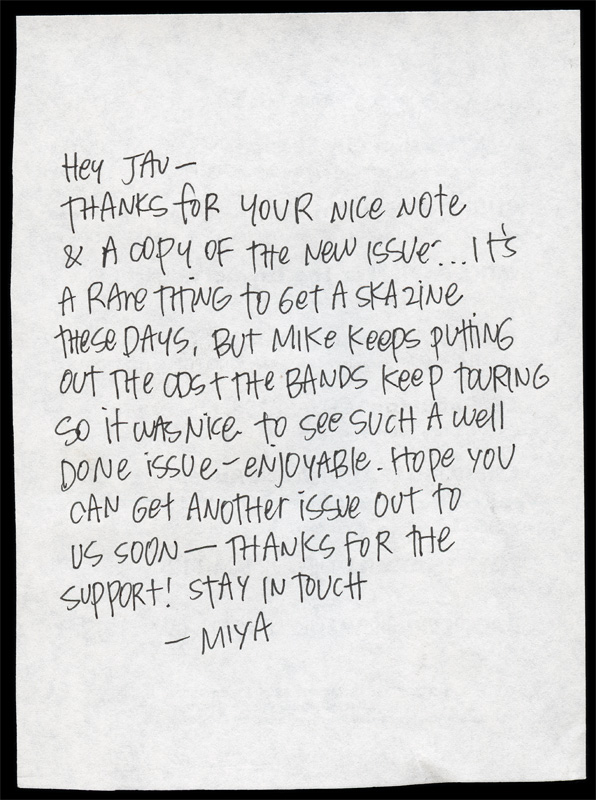 Hey JAV —
THANKS foR YOUR NICE NOte
& A COPY OF the NEW ISSUE...It's
A RARe THING to Get A SKA ZINE
these DAYS, BUt MIKe Keeps puttiNG
OUt THe CDs + tHe BANDS KeeP tOURING
SO it WAS NICe to See SUCH A well
DONe iSSUe - eNJOYABLe. HOpe YOU
CAN Get ANOtHer iSSUe OUt tO
US SOON — THANKS FOR tHe
SUPPORt! StAY IN TOUCH
— MIYA